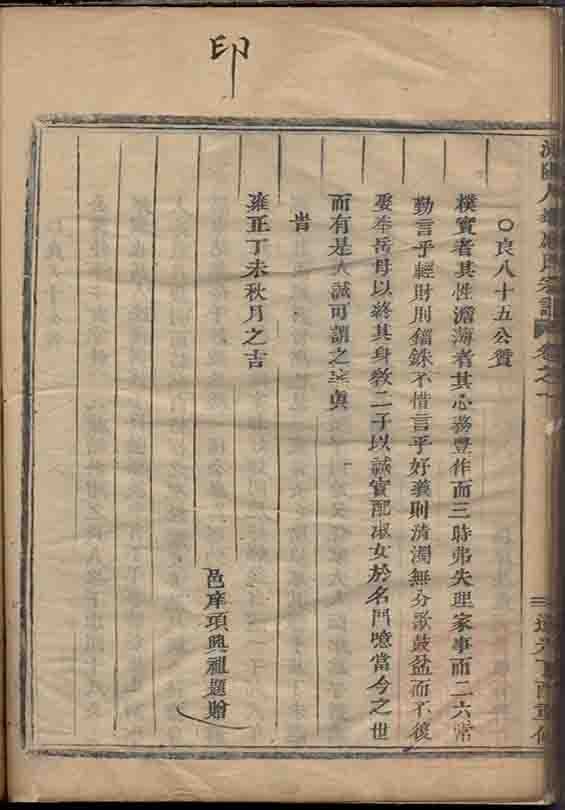 印
〇良八十五公贊
樸實者其性澹薄者其心務豐作而三時弗失理家事而二六常
勤言乎輕財則錙銖不惜言乎好義則清濁無分歌鼓盆而不復
娶奉岳母以終其身敎二子以誠實配淑女於名門噫當今之世
而有是人誠可謂之
旹
雍正丁未秋月之吉
邑庠項興祖題贈
氏宗譜 卷之